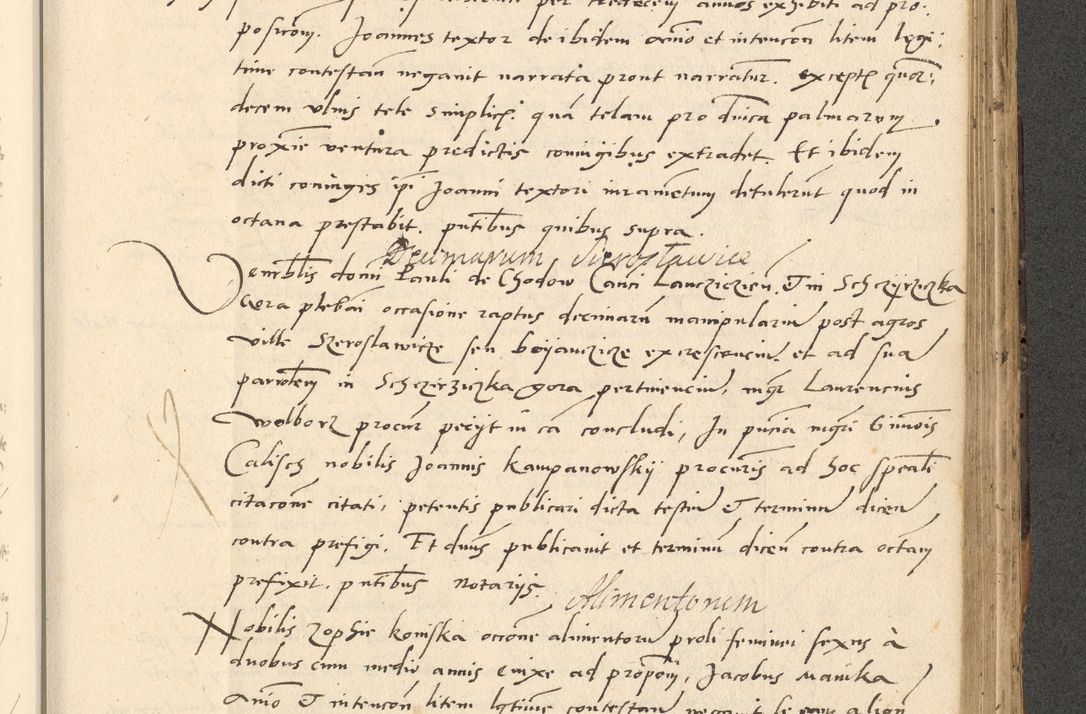 per tredecem annos exhibiti ad pro:
positionem. Joannes textor de ibidem animo et intencon litem legi:
time contestan negauit narrata prout narrantur. except quor:
decem vlnis tele simplicis: quam telam pro dnica palmarum
proxime ventura predictis coniugibus extradet. Et ibidem
dicti coniuges ipi Joanni textori iuramentum detulerunt quod in
octaua prestabit. pntibus quibus supra.
Decimarum Sieroslawice
Venerblis domi Pauli de Chodow Canci Lancziczien. & in Schczyrzeczka
Gora plebani occasione raptus decimarum manipularium post agros
ville Szeroslawicze seu boijanczicze excrescencium et ad sua
parrochem in Schczerziczka gora pertinencium, mgr Laurencius
Wolborz procur pecijt in ca concludi, In pncia mgri
Calisch nobilis Joannis Kampanowskij procuris ad hoc speali
citacone citati, petentis publicari dicta testium & terminum dicen
contra prefigi. Et dnus publicauit et terminum dicen contra octauam
prefixit. pntibus Notarijs.
Alimentorum
Nobilis Zophie koniska occone alimentorum proli feminei sexus à
duobus cum medio annis enixe ad propom, Jacobus Manika
Animo & intencon litem lgtime contestan negauit se eam aliqn